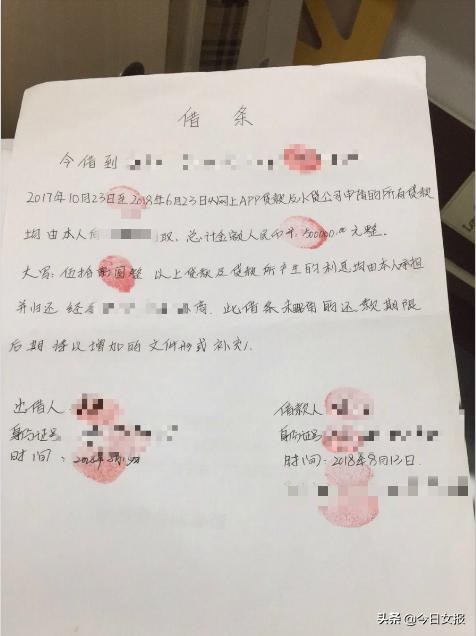 借条
今借到
2017年10月23日至2018年6月23日从网上APP贷款及小贷公司申请的所有贷款
均由本人向 取，总计金额人民币 500000.00元整。
大写：伍拾 圆整 以上贷款及贷款所产生的利息均由本人承担
并归还 经 商，此借条 的还款期限
后期将以增加的文件形式补充。
出借人：
身份证号
时间：
借款人：
身份证号
时间：2018年8月13日.
头条 @今日女报